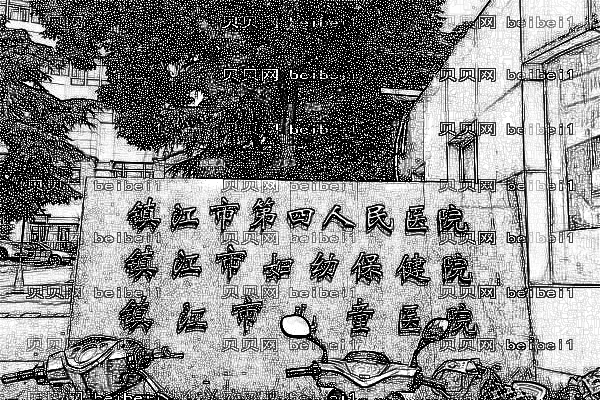 镇江市第四人民医院
镇江市妇幼保健院
镇江市儿童医院
贝贝网 beibei1